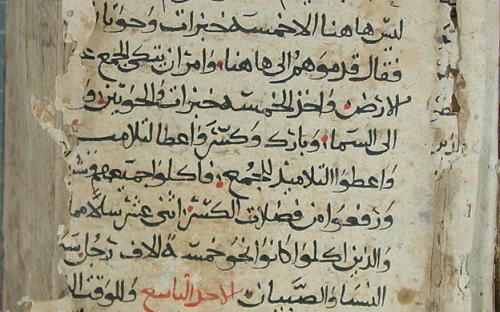 ليس هاهنا الا خمسه خبزات وحوتان
فقال قدموهم الى هاهنا وامر ان يتكى الجمع
الارض واخذ الخمسه خبزات والحوتين و
الى السما وبارك وكسر واعطا لتلاميـ
واعطوا التلاميذ للجمع فاكلوا جميعهم وشبـ
ورفعوا من فضلات الكسر اثنى عشر سلا مما
والذين اكلوا كانوا نحو خمسه الاف رجل سـ
النسا والصبيان الاحد التاسع وللوقت